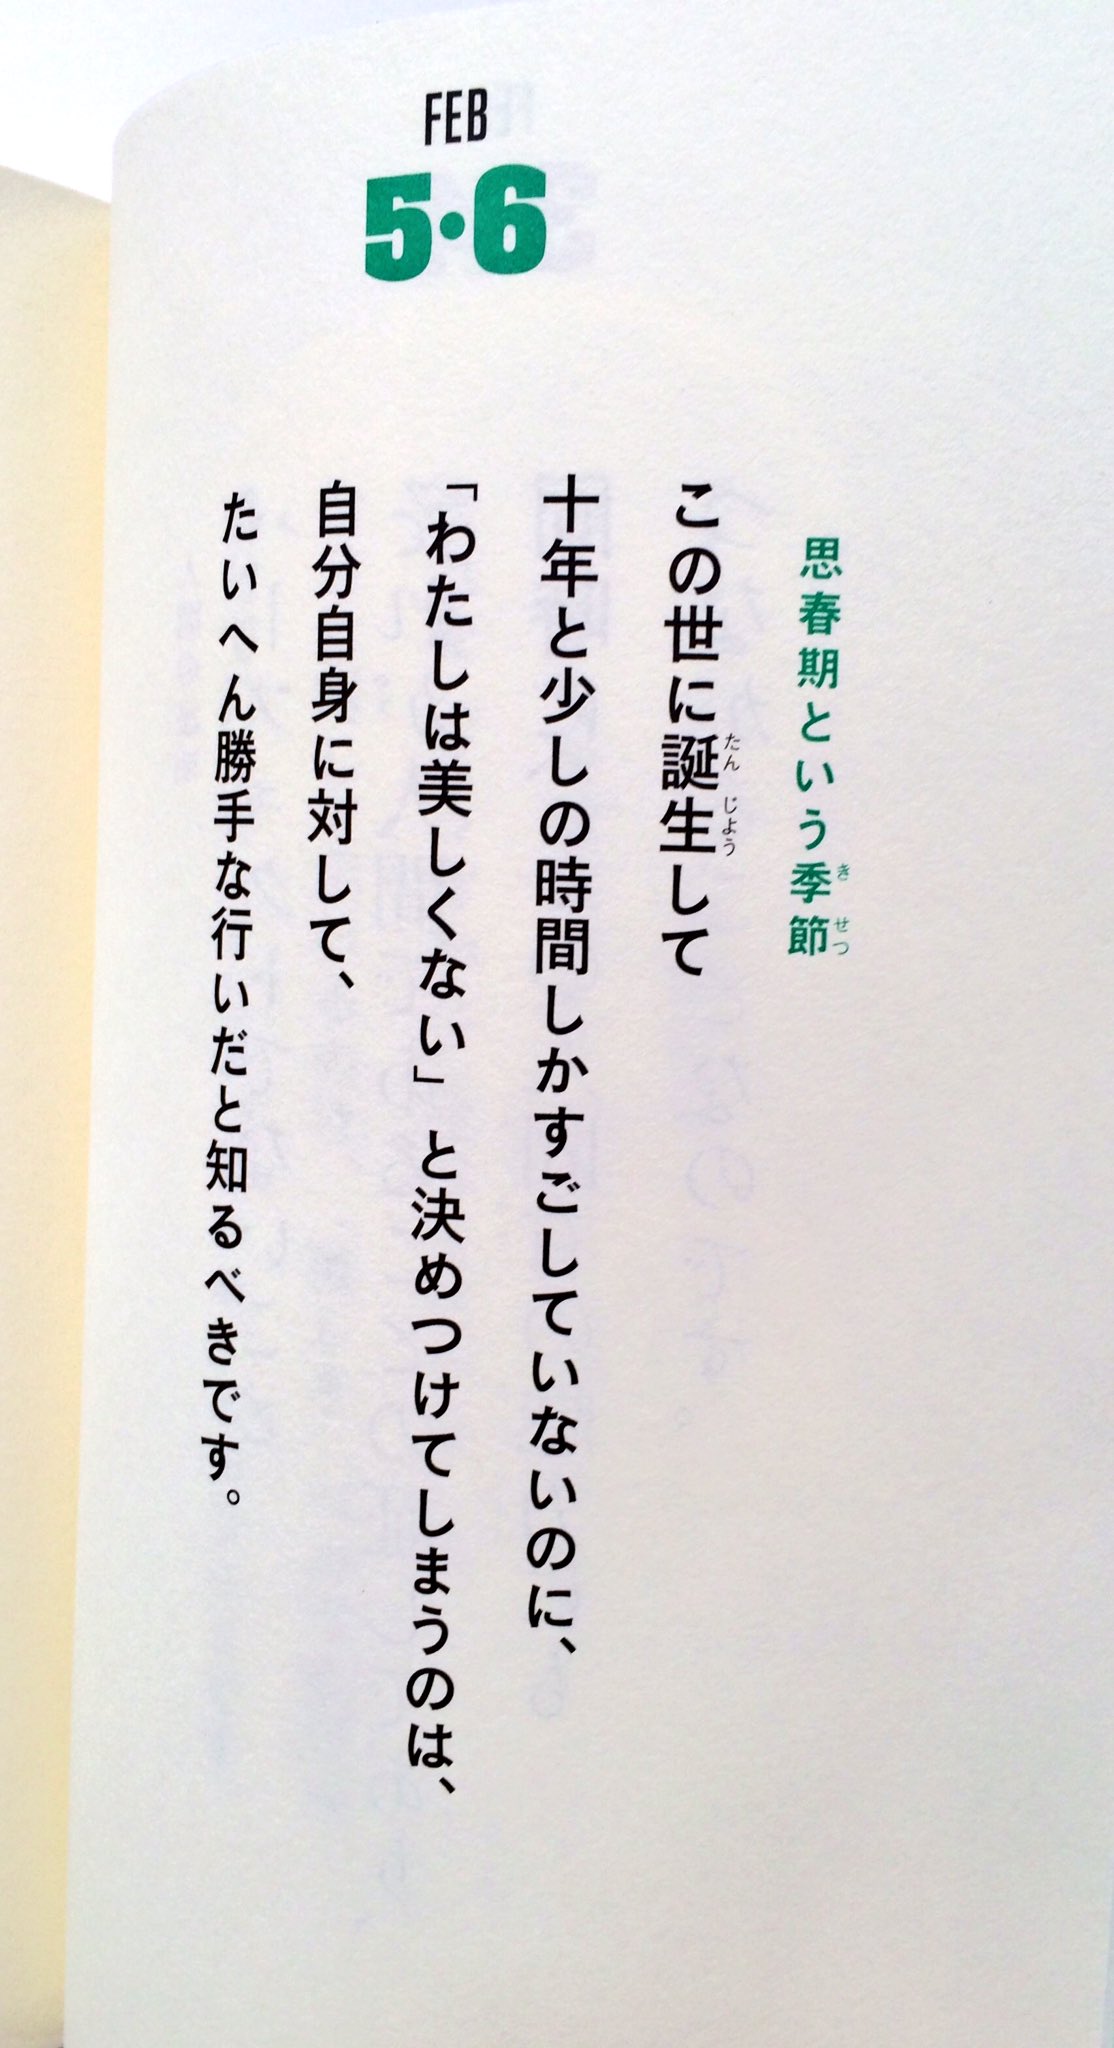 FEB
5・6
思春期という季節
この世に誕生して
十年と少しの時間しかすごしていないのに、
「わたしは美しくない」と決めつけてしまうのは、
自分自身に対して、
たいへん勝手な行いだと知るべきです。